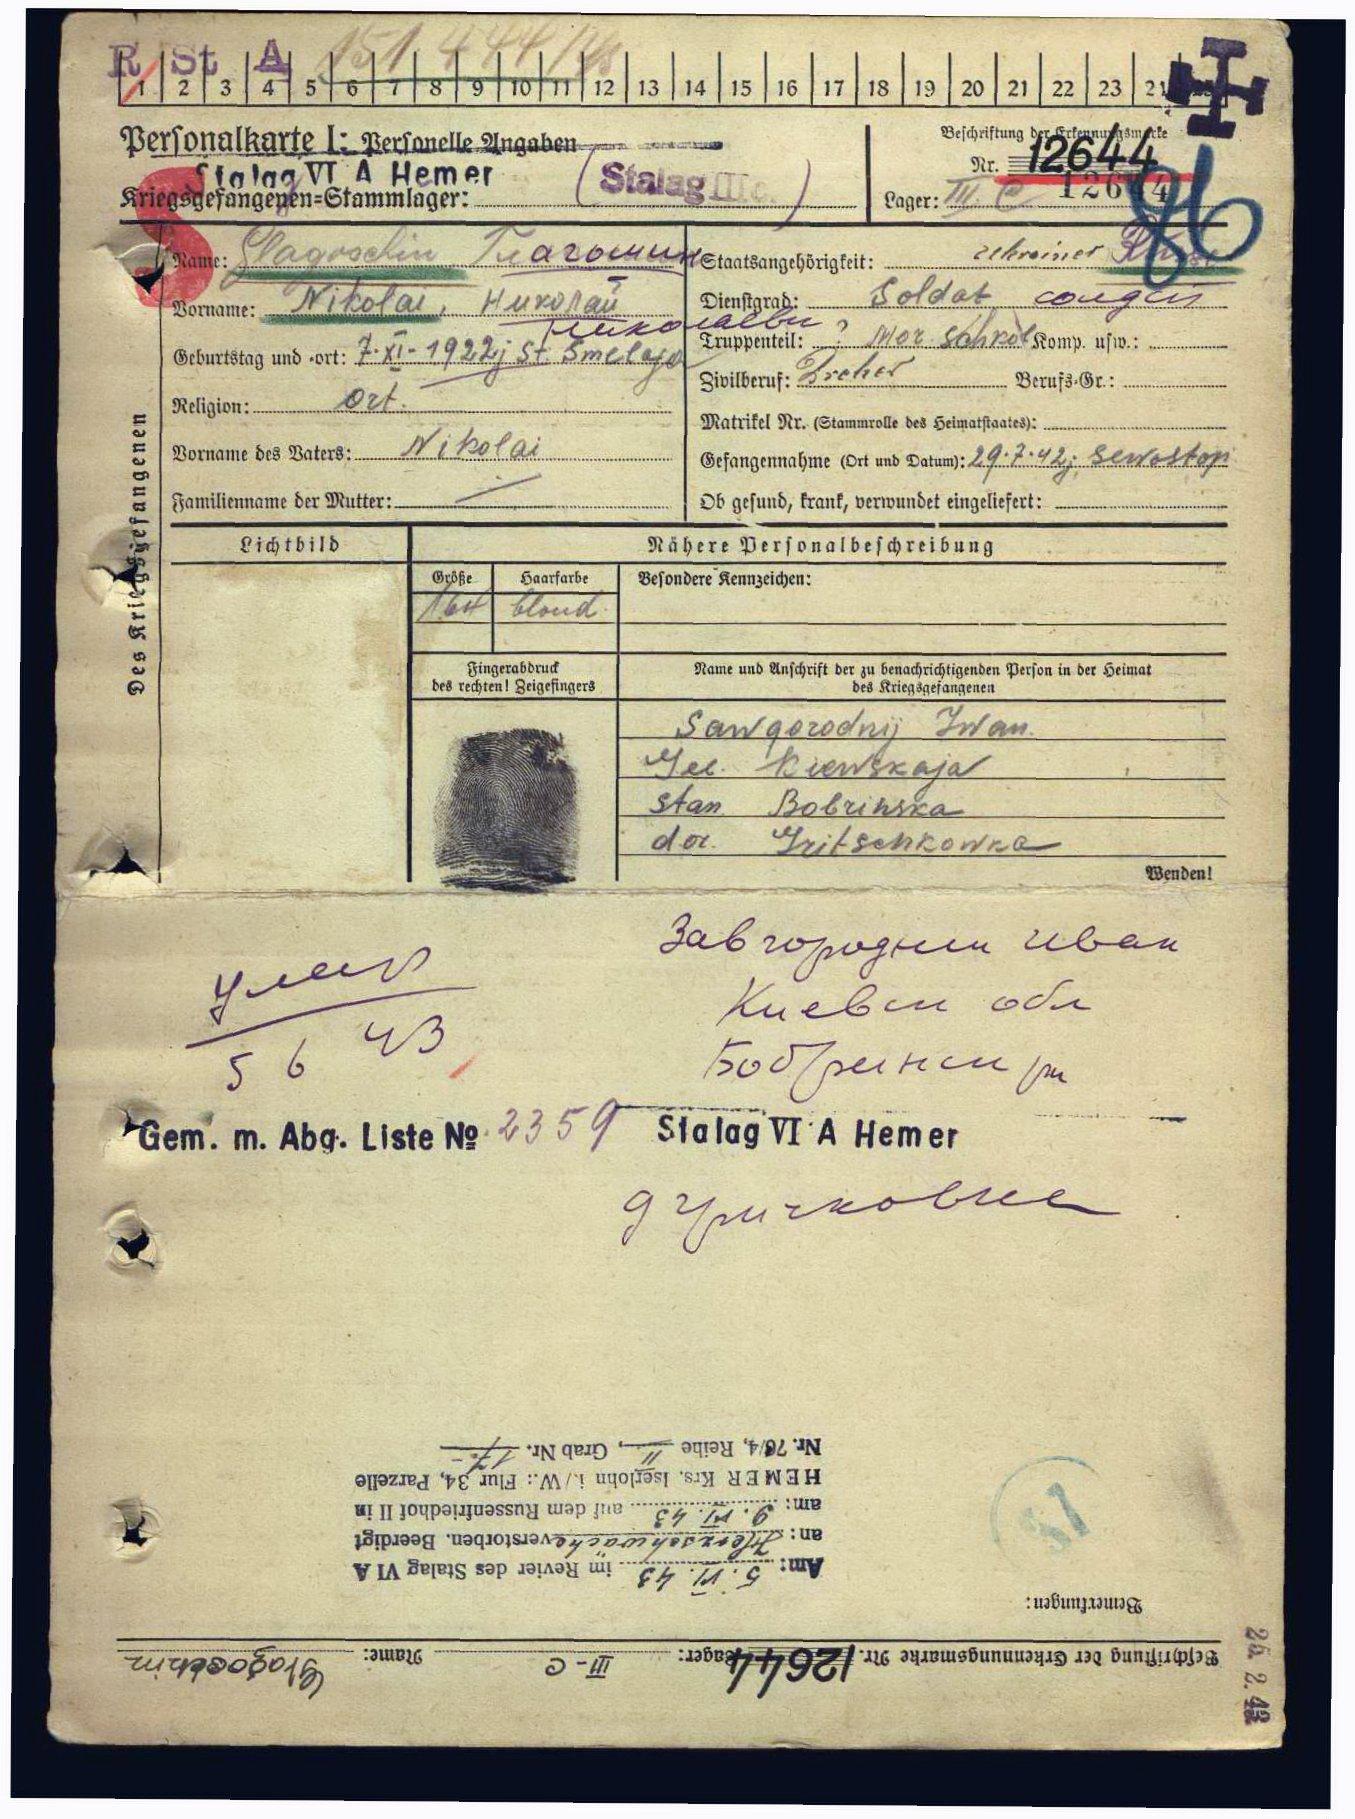 R St A 151 444
1 2 3 4 5 6 7 8 9 10 11 12 13 14 15 16 17 18 19 20 21 22 23 24
Personalkarte I: Personelle Angaben
Beschriftung der Erkennungsmarke
Stalag VI A Hemer
(Stalag III C.)
Nr. 12644
Kriegsgefangenen=Stammlager:
Lager: III. C 12644
86
Des Kriegsgefangenen
Name: Glagoschin Глагошин
Staatsangehörigkeit: Ukrainer
Vorname: Nikolai, Николай
Николаеви
Dienstgrad: Soldat солдат
Geburtstag und =ort: 7.XI-1922; St. Smelaja
Truppenteil: ? Mor. Schkol Komp. usw.:
Zivilberuf: Dreher Berufs=Gr.:
Religion: Ort.
Matrikel Nr. (Stammrolle des Heimatstaates):
Vorname des Vaters: Nikolai
Gefangennahme (Ort und Datum): 29.7.42; Sewostop
Familienname der Mutter: —
Ob gesund, krank, verwundet eingeliefert:
Lichtbild
Nähere Personalbeschreibung
Größe Haarfarbe Besondere Kennzeichen:
164 blond.
Fingerabdruck
des rechten! Zeigefingers
Name und Anschrift der zu benachrichtigenden Person in der Heimat
des Kriegsgefangenen
Sawgorodnij Iwan.
Kiewskaja
Stan Bobrinska
dor. Gritschkowka
Wenden!
Завгородний Иван
умер
Киевск обл
5 6 43
Бобринск рн
Gem. m. Abg. Liste № 2359 Stalag VI A Hemer
д Гричковка
Nr. 78/4, Reihe II, Grab Nr. 17.-
HEMER Krs. Iserlohn i./W.: Flur 34, Parzelle
am: 9. VI. 43 auf dem Russenfriedhof II in
an: Herzschwäche verstorben. Beerdigt
Am: 5. VI. 43 im Revier des Stalag VI A
Bemerkungen:
Beschriftung der Erkennungsmarke Nr. 12644 Lager: III-C Name: Glagoschin